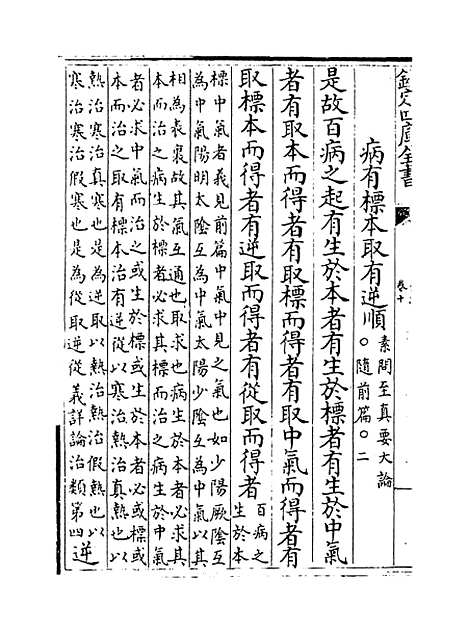 欽定四庫全書
卷十
病有標本取有逆順 素問至真要大論
○隨前篇○二
是故百病之起有生於本者有生於標者有生於中氣
者有取本而得者有取標而得者有取中氣而得者有
取標本而得者有逆取而得者有從取而得者 百病之
生於本
標中氣者義見前篇中氣中見之氣也如少陽厥陰互
為中氣陽明太陰互為中氣太陽少陰互為中氣以其
相為表裏故其氣互通也取求也病生於本者必求其
本而治之病生於標者必求其標而治之病生於中氣
者必求中氣而治之或生於標或生於本者必或標或
本而治之取有標本治有逆從以寒治熱治真熱也以
熱治寒治真寒也是為逆取以熱治熱治假熱也以
寒治寒治假寒也是為從取逆從義詳論治類第四 逆